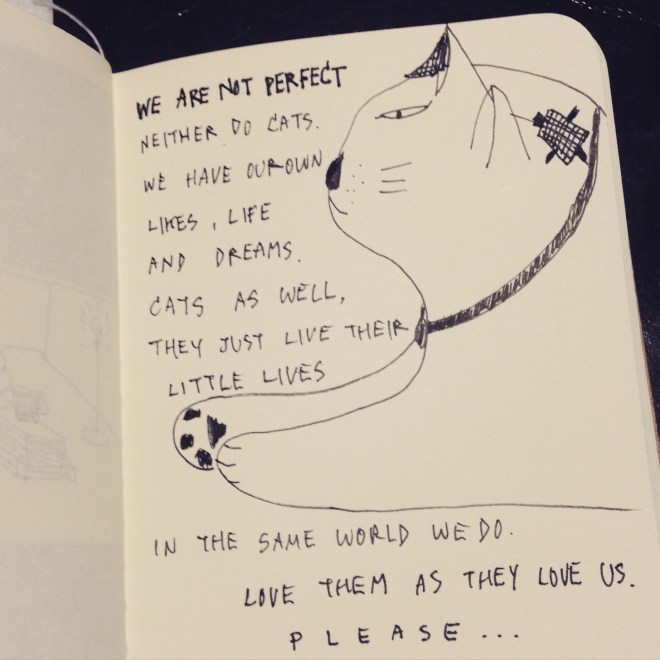 WE ARE NOT PERFECT
NEITHER DO CATS.
WE HAVE OUR OWN
LIKES, LIFE
AND DREAMS.
CATS AS WELL,
THEY JUST LIVE THEIR
LITTLE LIVES
IN THE SAME WORLD WE DO.
LOVE THEM AS THEY LOVE US.
PLEASE...